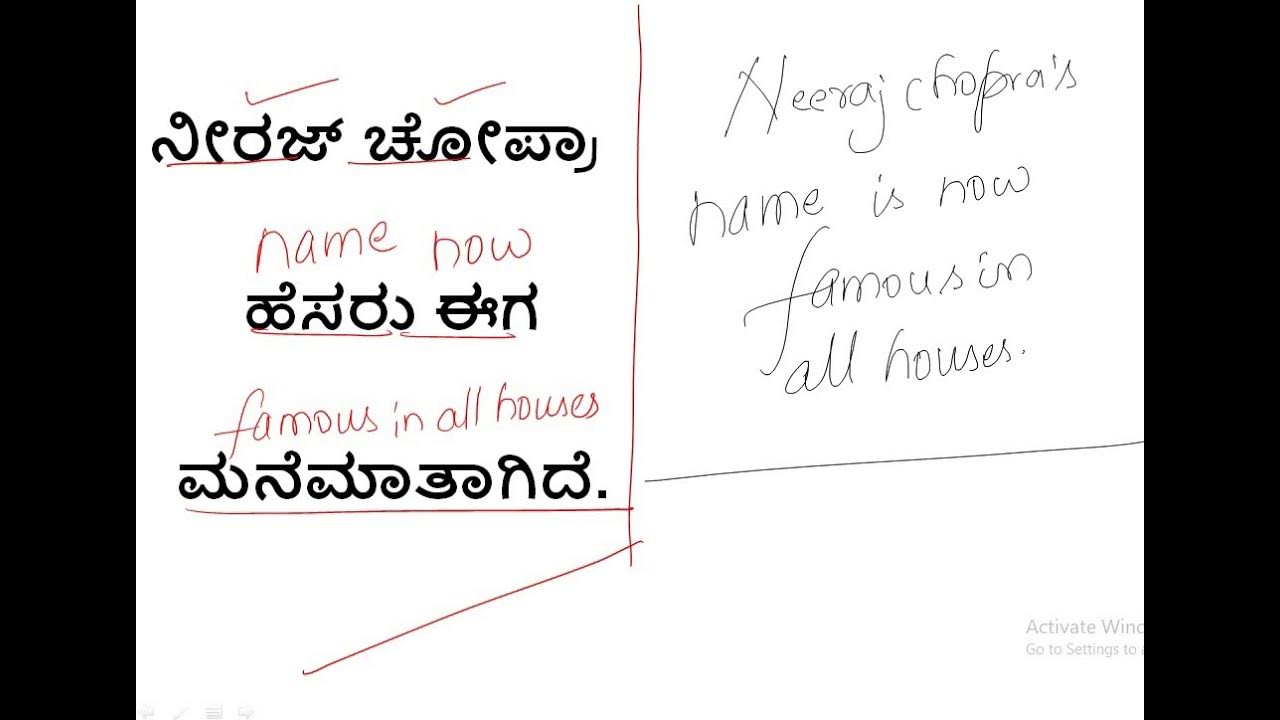 ನೀರಜ್ ಚೋಪ್ರಾ
name now
ಹೆಸರು ಈಗ
famous in all houses
ಮನೆಮಾತಾಗಿದೆ.
Neeraj chopra's
name is now
famous in
all houses.
Activate Wind
Go to Settings to a